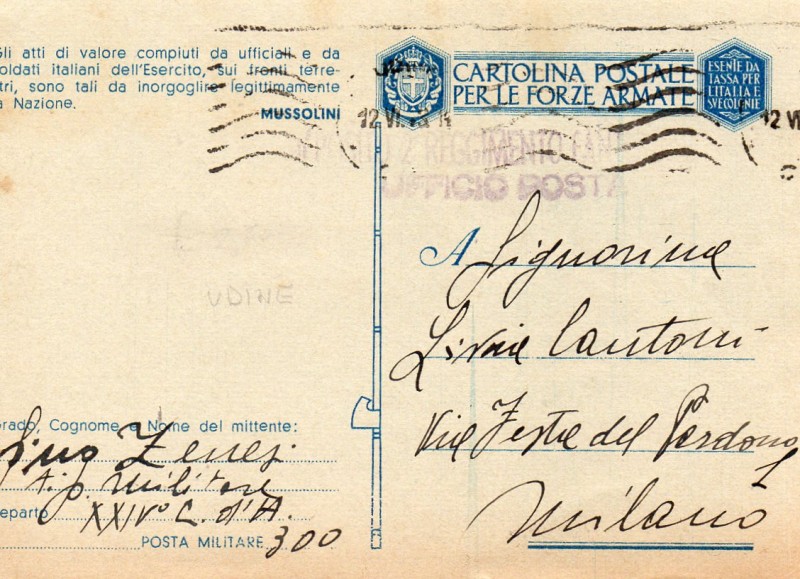 Gli atti di valore compiuti da ufficiali e da
soldati italiani dell'Esercito, sui fronti terre-
stri, sono tali da inorgoglire legittimamente
la Nazione.
MUSSOLINI
CARTOLINA POSTALE
PER LE FORZE ARMATE
ESENTE DA
TASSA PER
L'ITALIA E
SUE COLONIE
12 VI
12 VI
2 REGGIMENTO
UFFICIO POSTA
A Signorina
Livia Cantoni
Via Festa del Perdono
1
Milano
UDINE
Grado, Cognome e Nome del mittente:
Gino
A. P. Militare
Reparto XXIV° C. d'A.
POSTA MILITARE 300